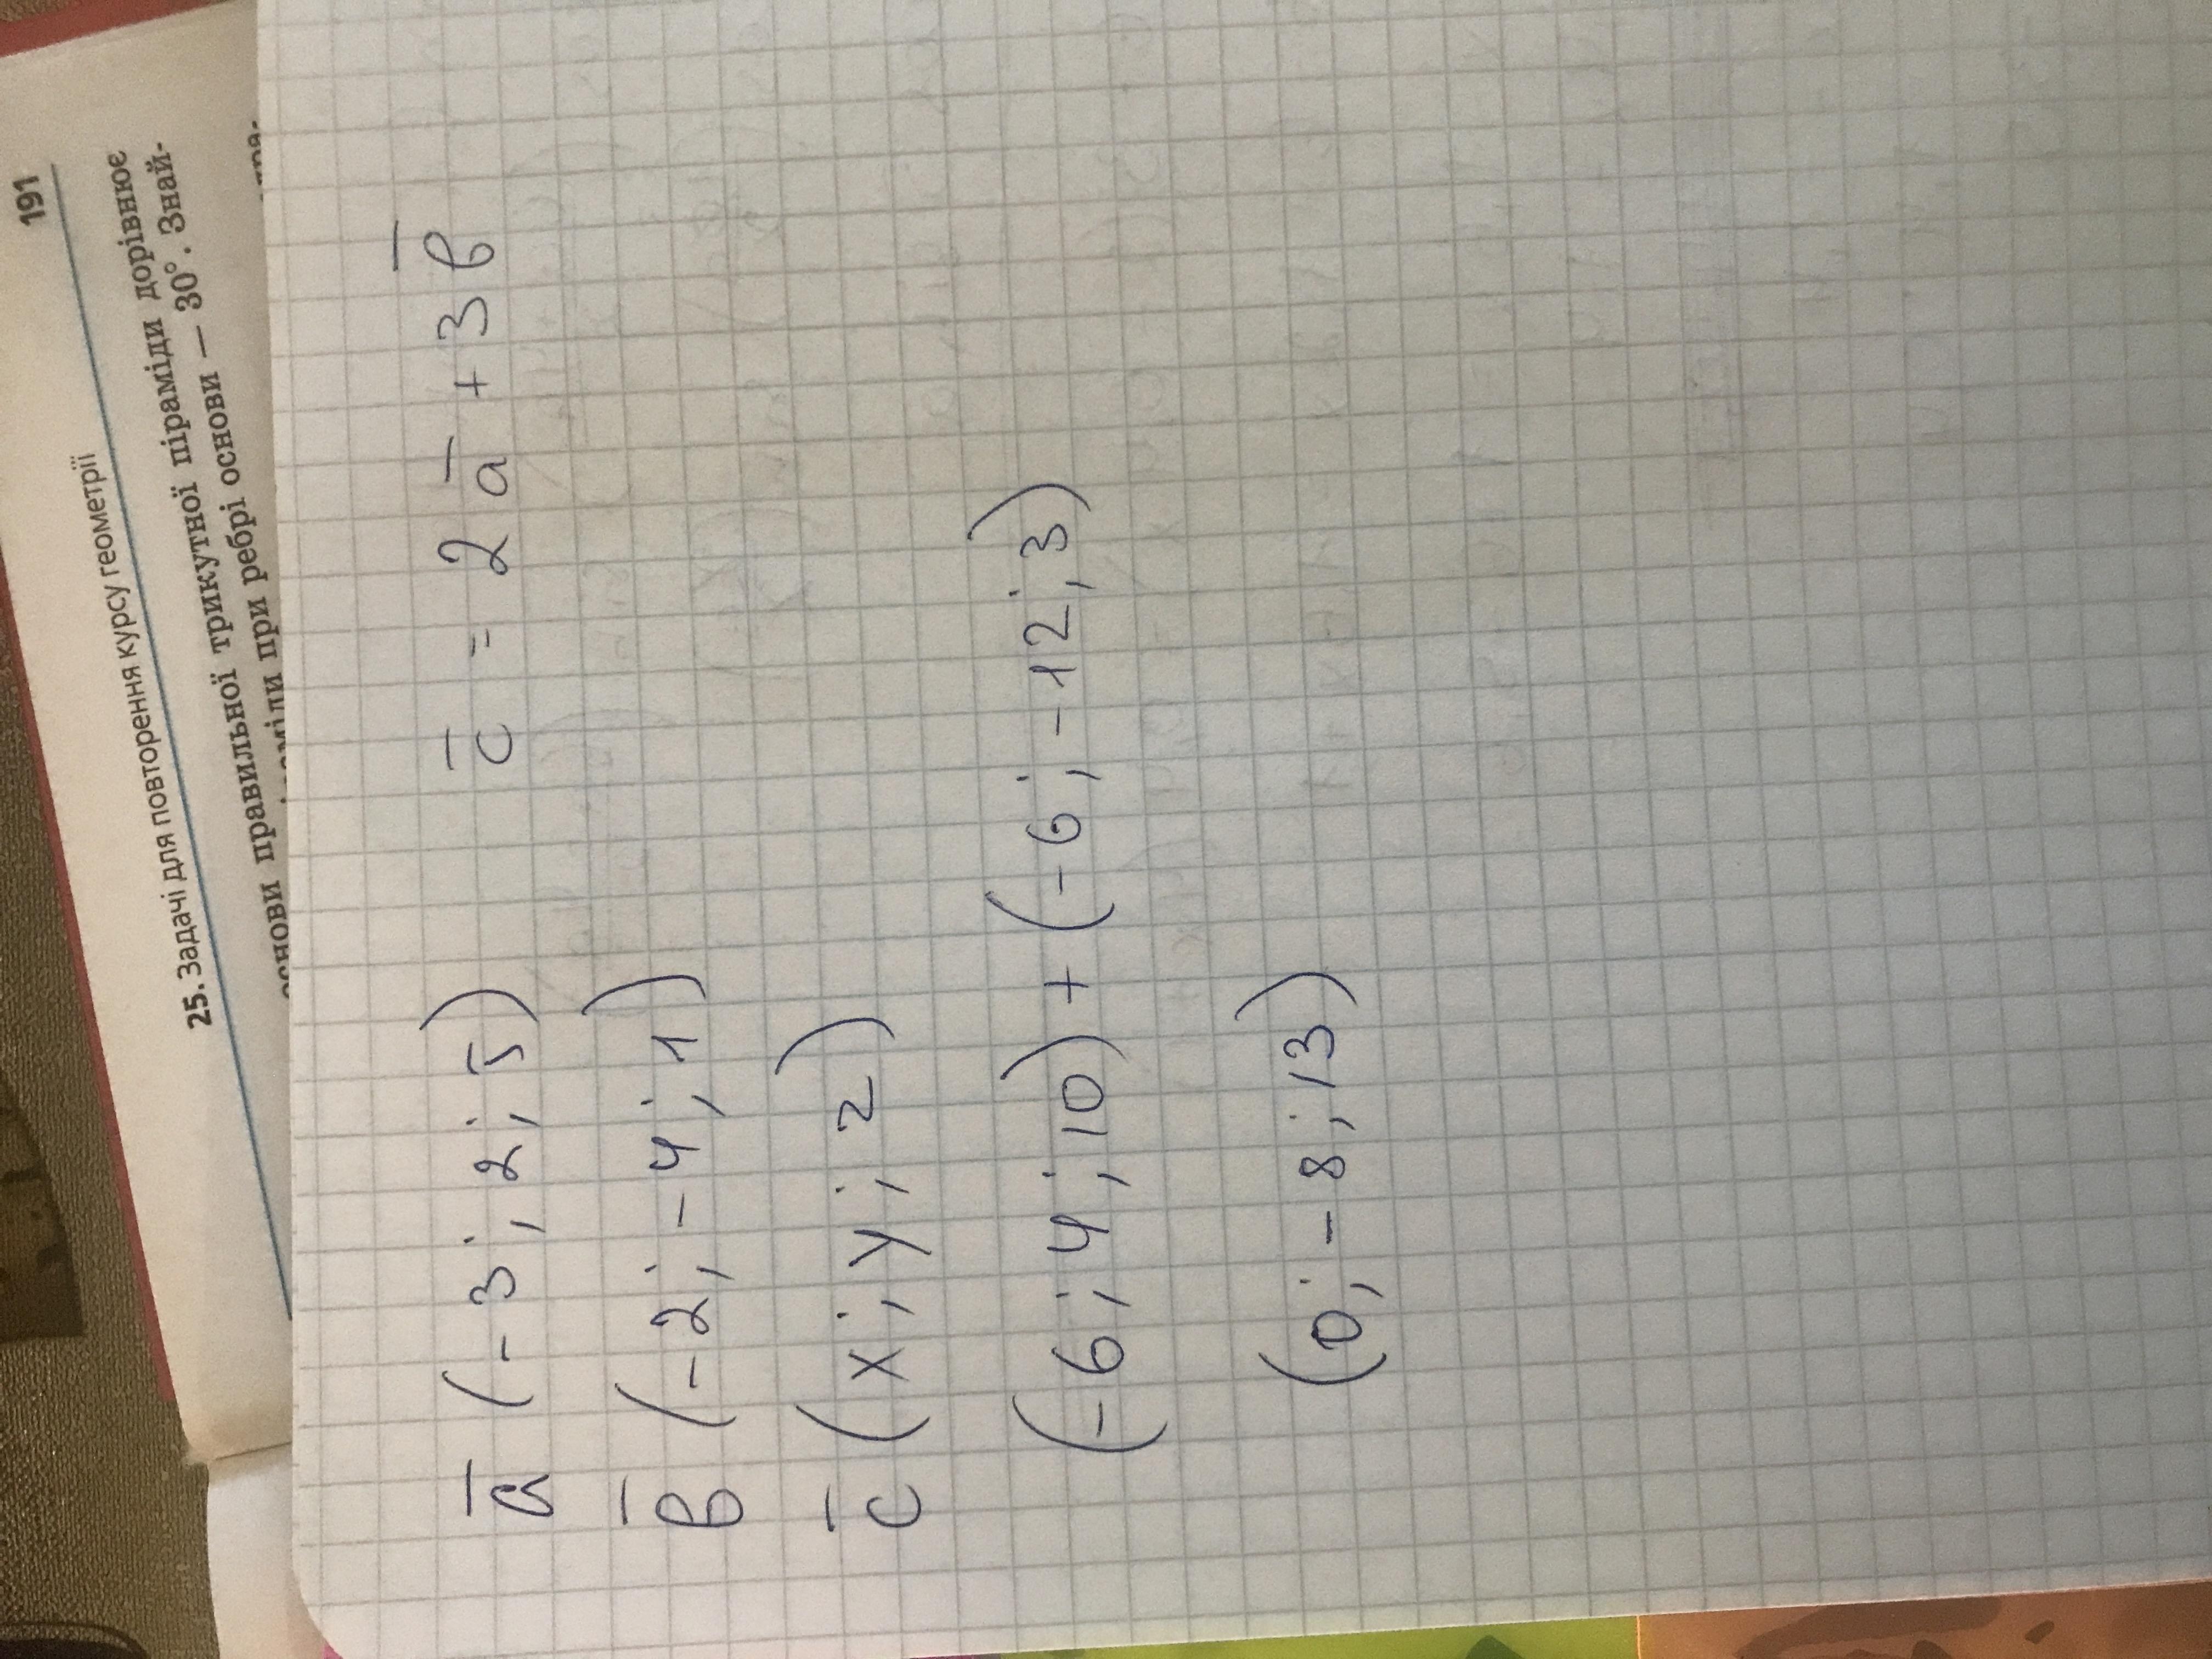 191
25. Задачі для повторення курсу геометрії
основи правильної трикутної піраміди дорівнює
при ребрі основи — 30°. Знай-
a̅ (-3; 2; 5) c̅ = 2a̅ + 3b̅
b̅ (-2; -4; 1)
c̅ (x; y; z)
(-6; 4; 10) + (-6; -12; 3)
(0; -8; 13)